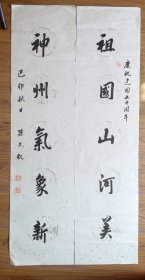 慶祝建國五十周年
祖國山河美
神州氣象新
己卯秋日